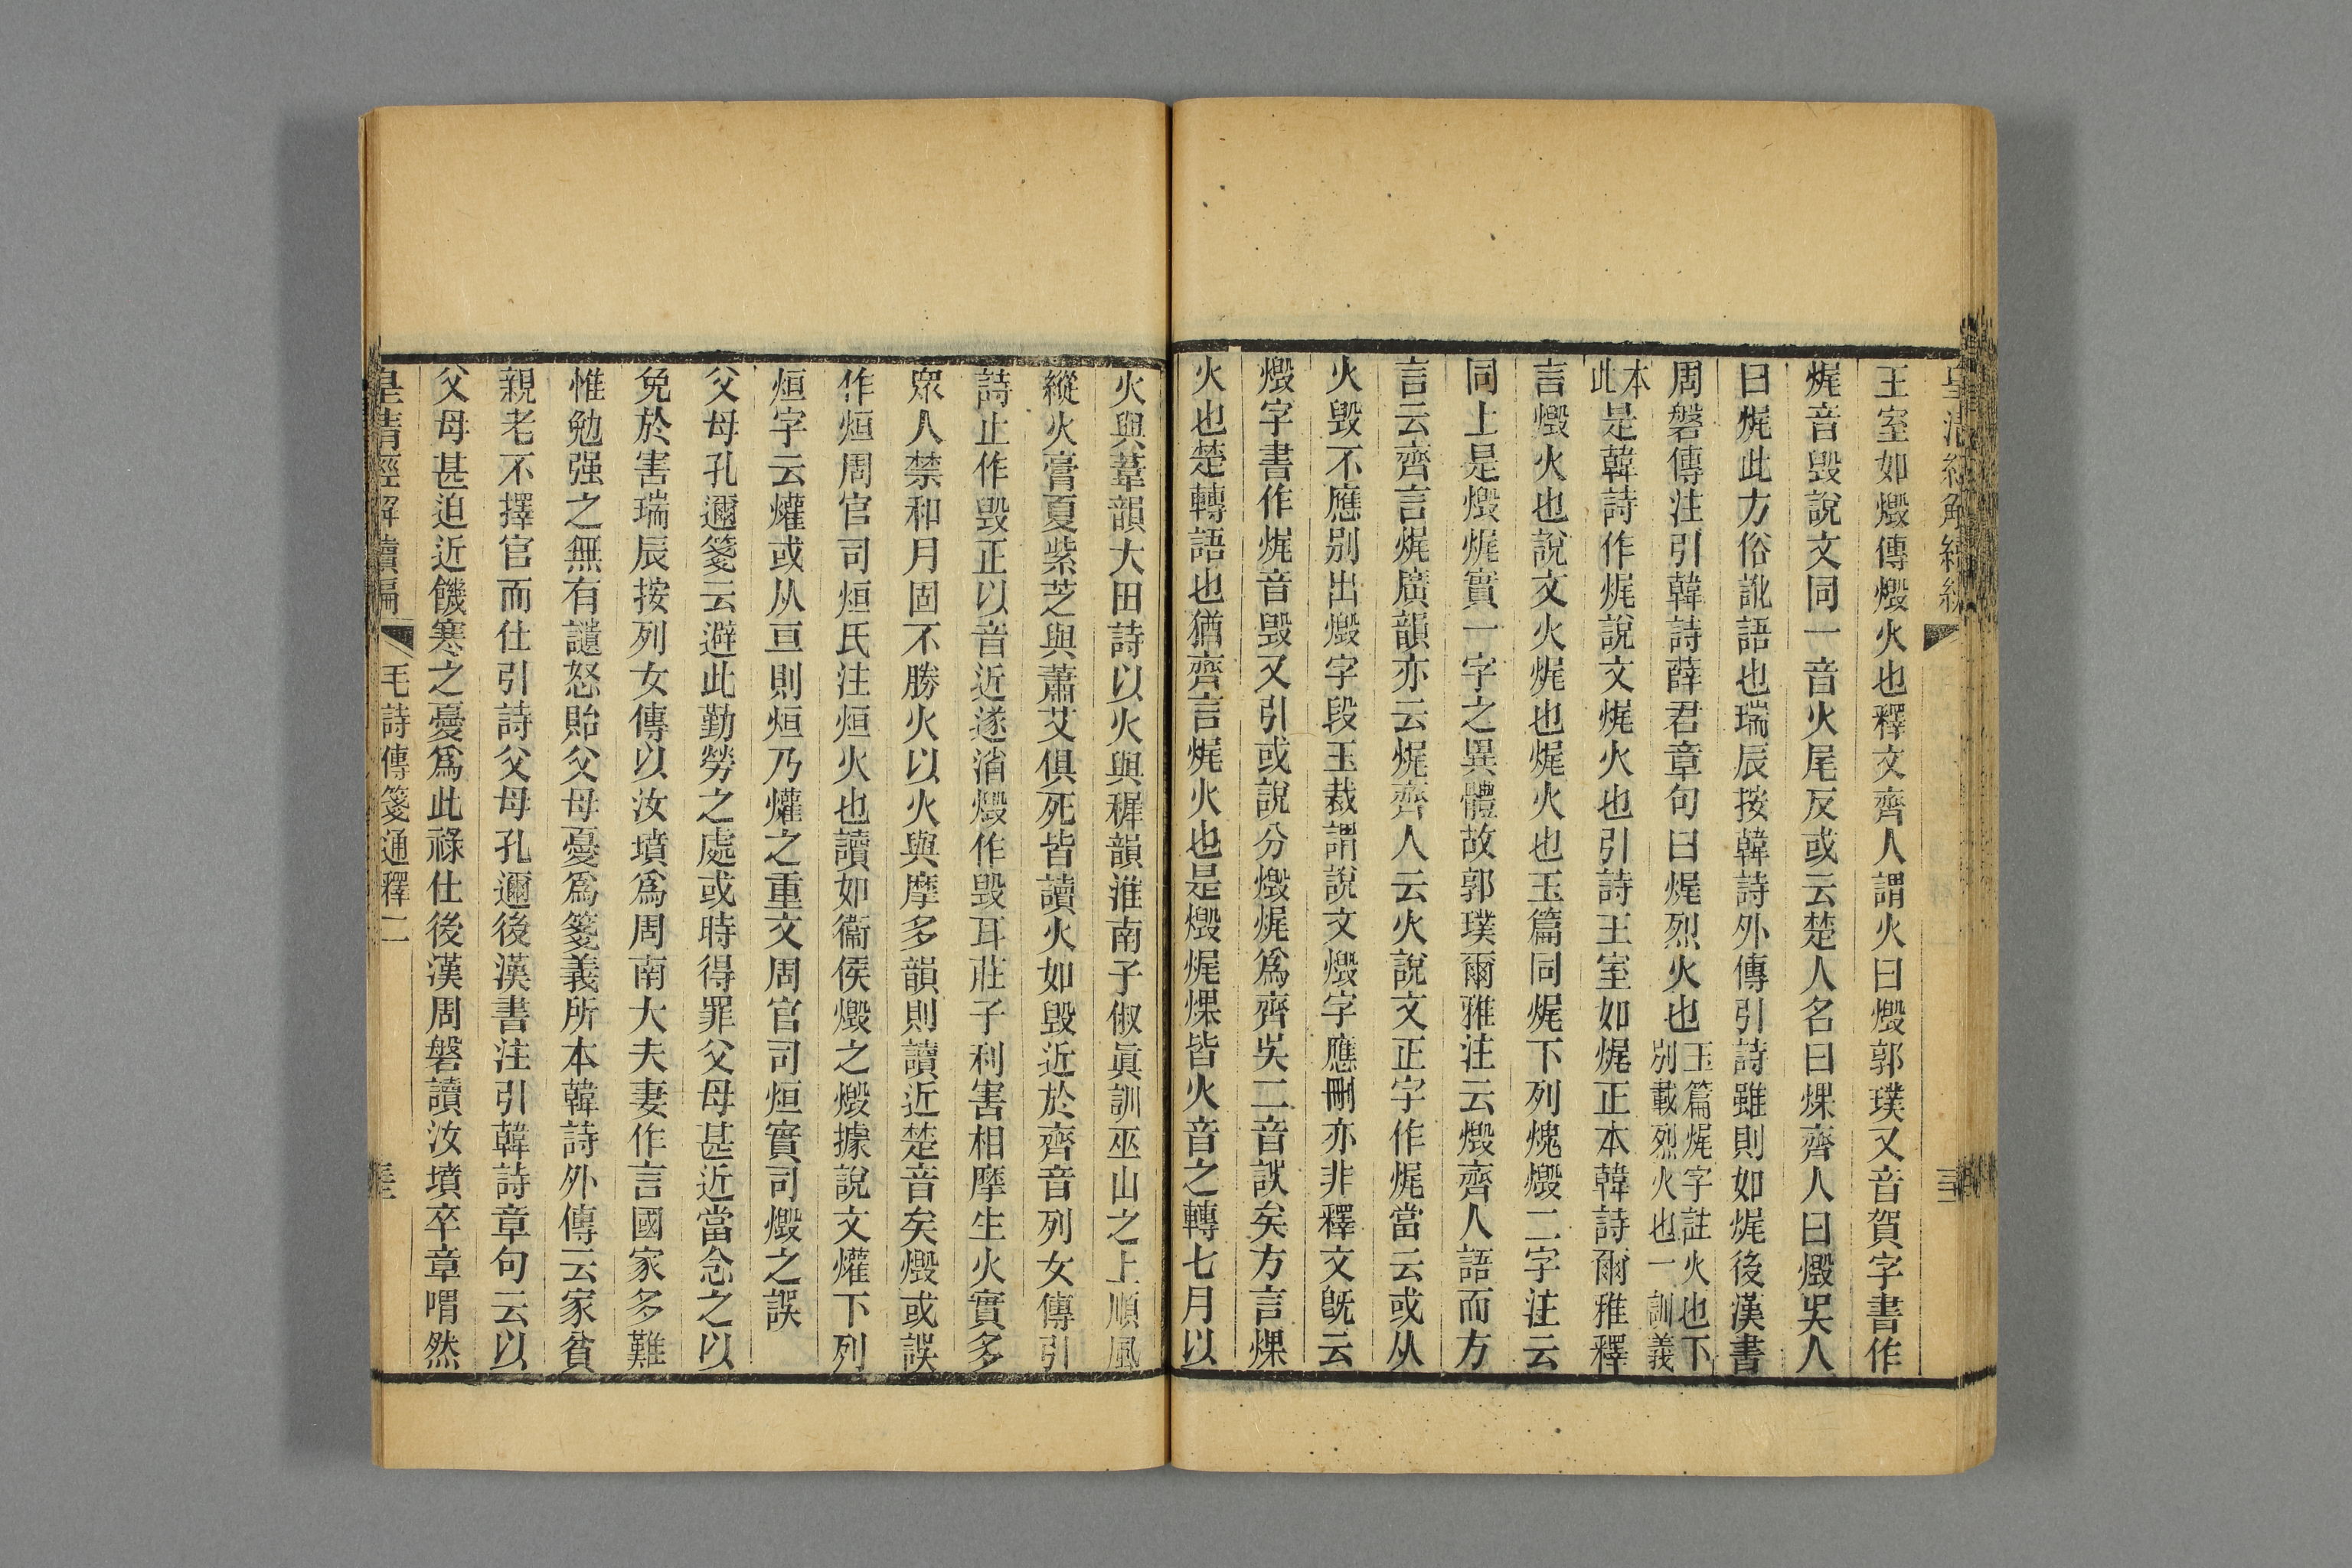 王室如燬傳燬火也釋文齊人謂火曰燬郭璞又音賀字書作
㷄音毀說文同一音火尾反或云楚人名曰㷄齊人曰燬吳人
曰㷄此方俗訛語也瑞辰按韓詩外傳引詩雖則如㷄後漢書
周磐傳注引韓詩薛君章句曰㷄烈火也玉篇㷄字註火也下別載烈火也一訓義
本此是韓詩作㷄說文㷄火也引詩王室如㷄正本韓詩爾雅釋
言燬火也說文火㷄也㷄火也玉篇同㷄下列燬二字注云
同上是燬㷄實一字之異體故郭璞爾雅注云燬齊人語而方
言云齊言㷄廣韻亦云㷄齊人云火說文正字作㷄當云或从
火毀不應別出燬字段玉裁謂說文燬字應刪亦非釋文旣云
燬字書作㷄音毀又引或說分燬㷄爲齊吳二音誤矣方言煤
火也楚轉語也猶齊言㷄火也是燬㷄皆火音之轉七月以
火與葦韻大田詩以火與穉韻淮南子俶眞訓巫山之上順風
縱火膏夏紫芝與蕭艾俱死皆讀火如毀近於齊音列女傳引
詩止作毀正以音近遂消燬作毀耳莊子利害相摩生火實多
衆人禁和月固不勝火以火與摩多韻則讀近楚音矣燬或誤
作烜周官司烜氏注烜火也讀如衞侯燬之燬據說文爟下列
烜字云爟或从亘則烜乃爟之重文周官司烜實司燬之誤
父母孔邇箋云避此勤勞之處或時得罪父母甚近當念之以
免於害瑞辰按列女傳以汝墳爲周南大夫妻作言國家多難
惟勉强之無有譴怒貽父母憂爲箋義所本韓詩外傳云家貧
親老不擇官而仕引詩父母孔邇後漢書注引韓詩章句云以
父母甚迫近饑寒之憂爲此祿仕後漢周磐讀汝墳卒章喟然
皇清經解續編 毛詩傳箋通釋二